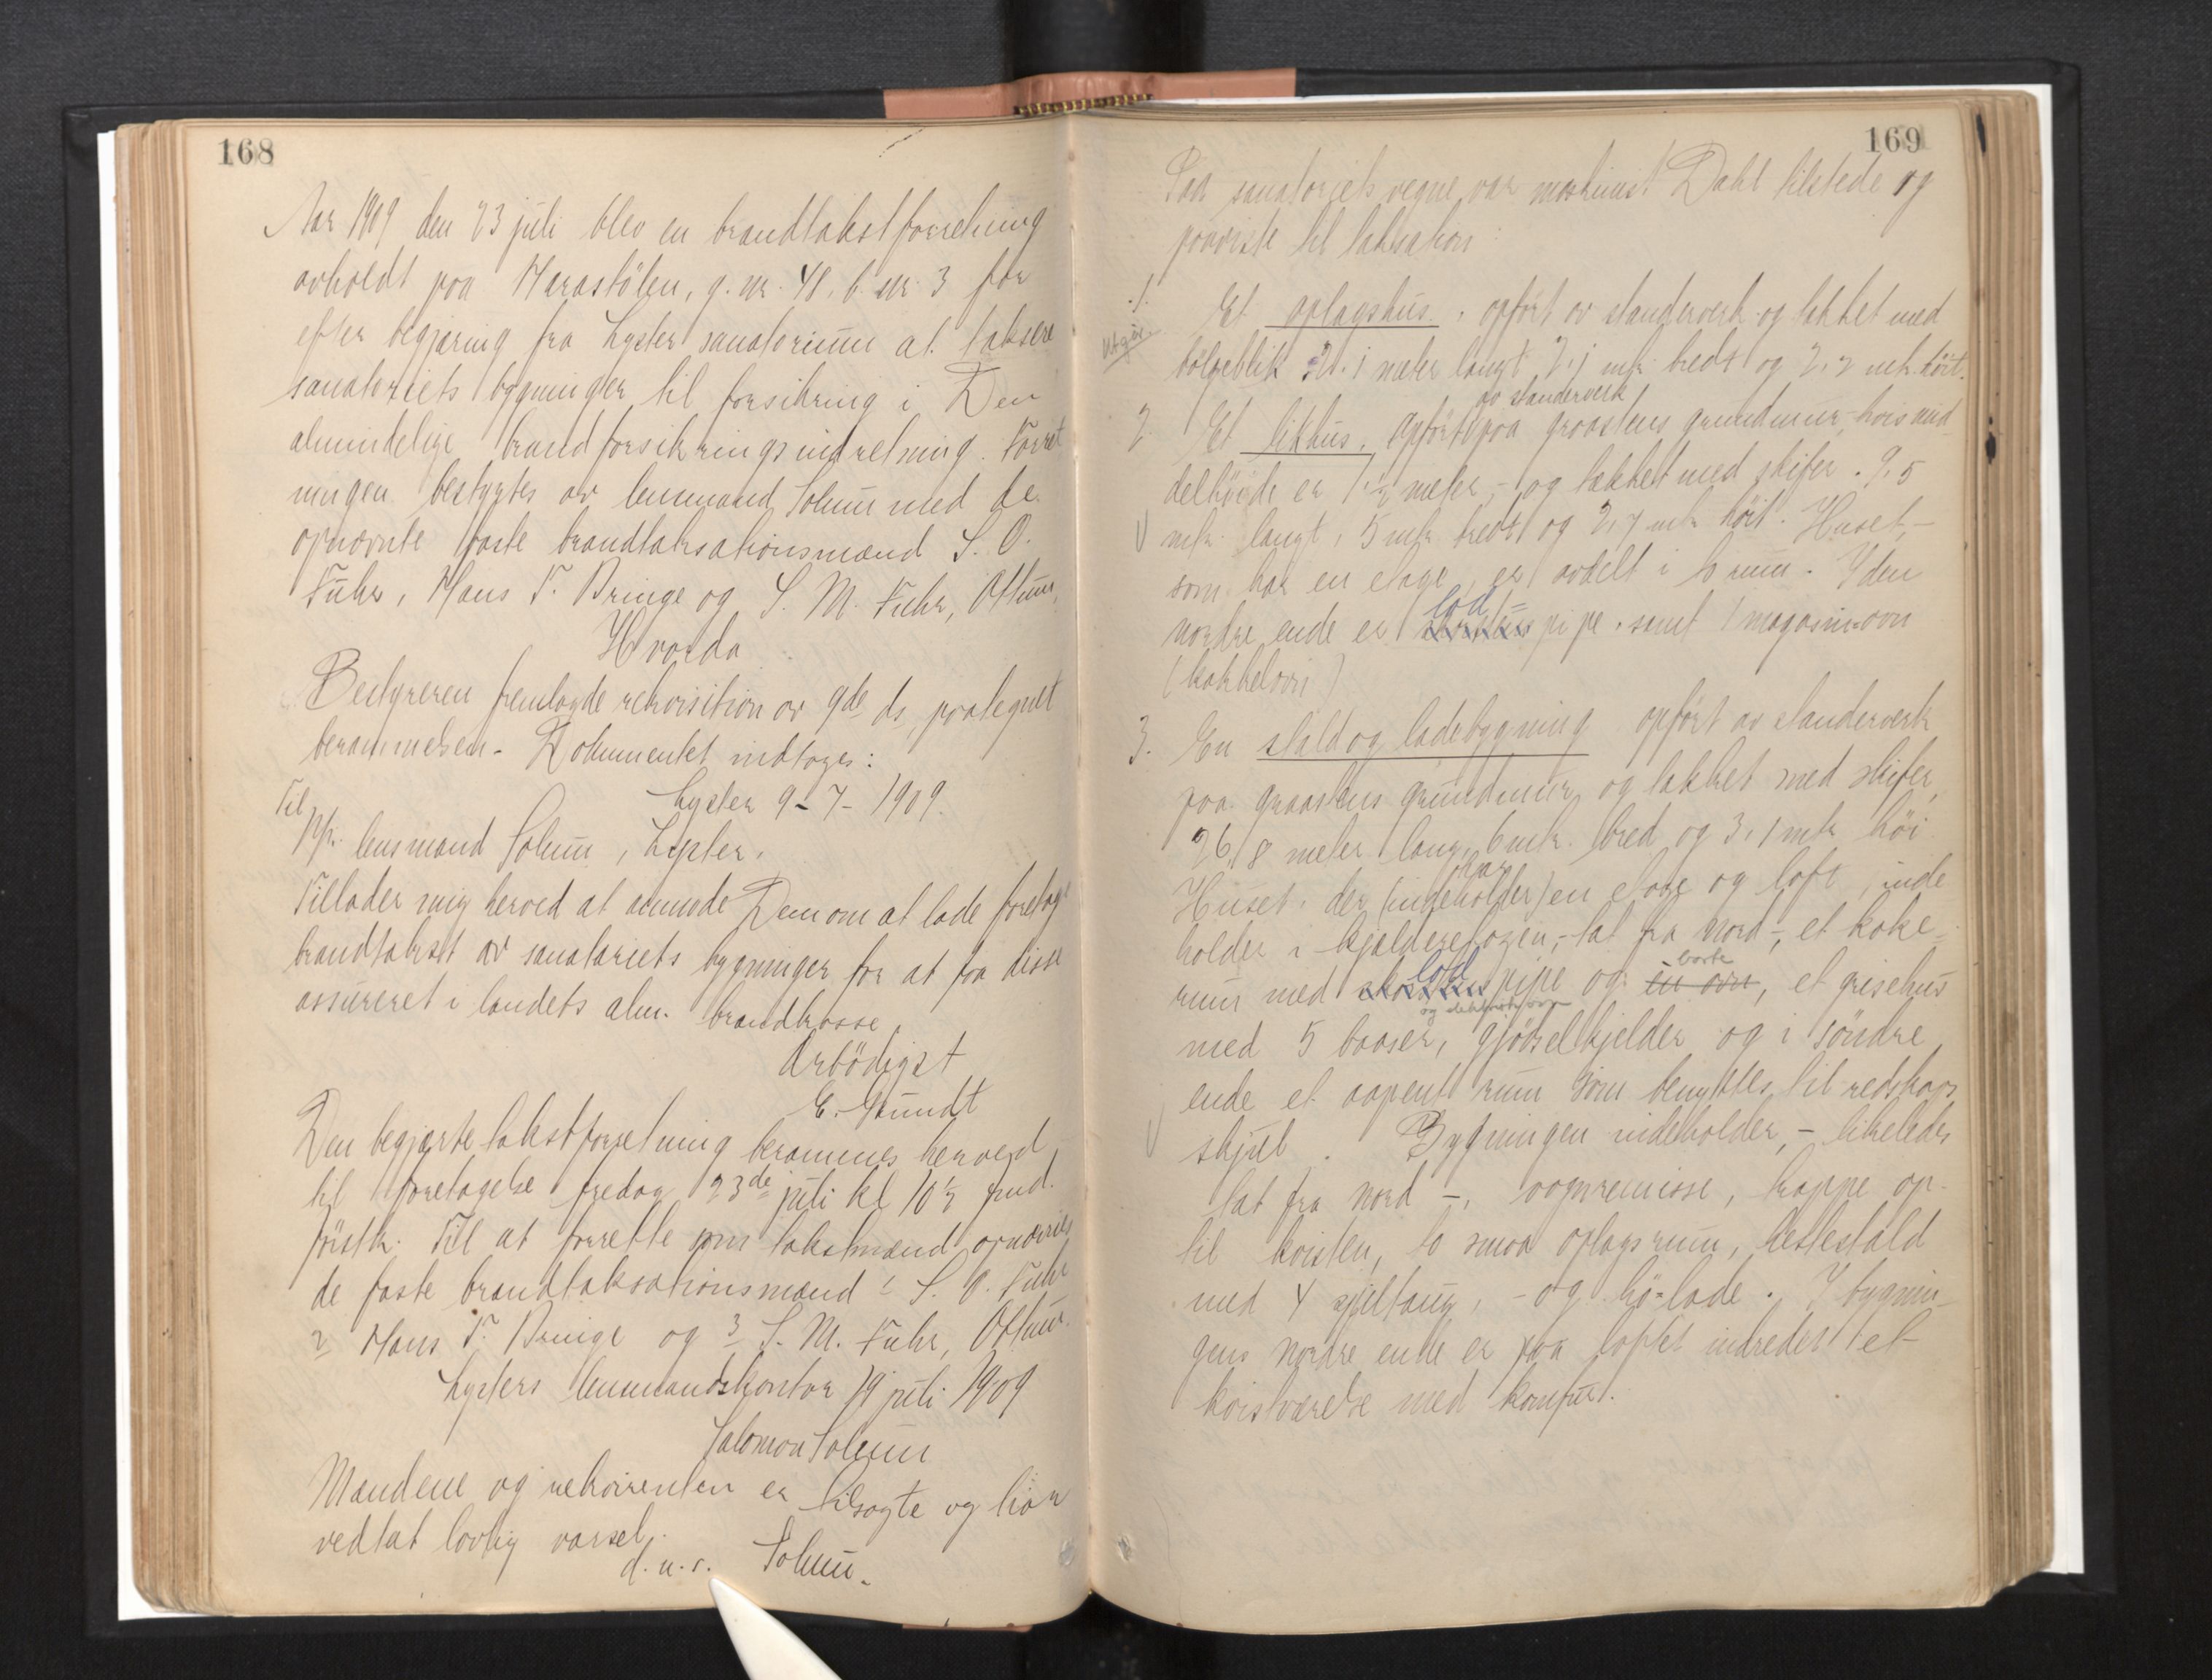 168
Aar 1909 den 23 juli blev en brandtakstforretning
avholdt paa Harastölen, g. nr. 48, b. nr. 3 for
efter begjæring fra Lyster sanatorium at taksere
sanatoriets bygninger til forsikring i Den
almindelige brandforsikringsindretning. Forret
ningen bestyrtes av lensmand Solum med de
opnævnte faste brandtaksationsmænd S. O.
Fuhr, Hans T. Bringe og S. M. Fuhr, Oftum,
Hvorda:
Bestyreren fremlagde rekvisition av 9de ds, paategnet
berammelsen. Dokumentet indtages:
Lyster 9-7-1909.
Til
Hr. lensmand Solum, Lyster.
Tillader mig herved at anmode Dem om at lade foretage
brandtakst av sanatoriets bygninger for at faa disse
assureret i landets alm. brandkasse.
Ærbödigst
E. Gundt
Den begjærte takstforretning berammes herved
til foretagelse fredag 23de juli kl 10½ fmd.
förstk. Til at forrette som takstmænd opnævnes
de faste brandtaksationsmænd 1 S. O. Fuhr
2 Hans T. Bringe og 3 S. M. Fuhr, Oftum.
Lysters lensmandskontor 19 juli 1909
Salomon Solum
Mændene og rekvirenten er tilsagte og har
vedtat lovlig varsel.
d. u. s. Solum.
169
Paa sanatoriets vegne var maskinist Dahl tilstede og
paaviste til taksation:
1. Et oplagshus, opført av standerverk og tækket med
Utgår
bølgeblik 21.1 meter langt 7.1 mtr. bredt og 2,2 mtr. høit.
av standerverk
2. Et likhus, opført paa graastens grundmur, hvis mid
delhøide er 1½ meter, - og tækket med skifer. 9,5
mtr. langt, 5 mtr. bredt og 2,7 mtr. høit. Huset, -
som har en etage, er avdelt i to rum. I den
lod
nordre ende er pipe, samt 1 magasin-ovn
(kakkelovn)
3. En stald og ladebygning opført av standerverk
paa graastens grundmur og tækket med skifer,
26,8 meter lang, 6 mtr. bred og 3,1 mtr. høi
har
Huset, der (indeholder) en etage og loft, inde
holder i kjælderetagen, - tat fra nord -, et koke-
borte
lod
rum med pipe og en ovn, et grisehus
med 5 baaser, gjødselkjelder og i søndre
ende et aapent rum som benyttes til redskaps
skjul. Bygningen indeholder, - likeledes
tat fra nord -, vognremisse, trappe op-
til kvisten, to smaa oplagsrum, hestestald
med 4 spiltaug, - og hø-lade. I bygnin-
gens nordre ende er paa loftet indredet et
kvistværelse med komfur.